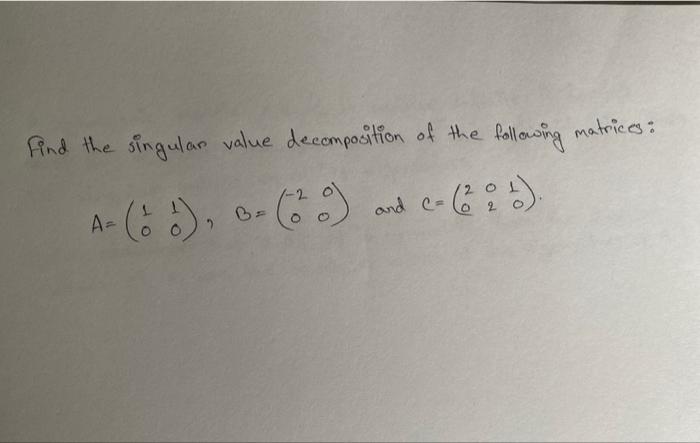 Find the singular value decomposition of the following matrices:
A= (1 1
0 0), B= (-2 0
0 0) and C= (2 0 1
0 2 0).